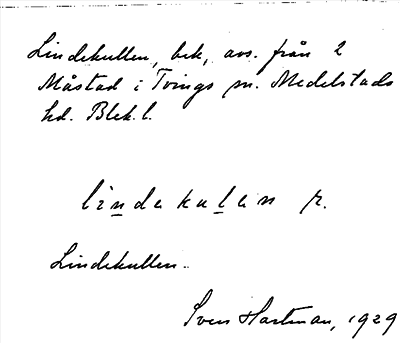 Lindekullen, bek, avs. från 2
Måstad i Tvings sn. Medelstads
hd. Blek.l.
lindekulen r.
Lindekullen.
Sven Hartman, 1929